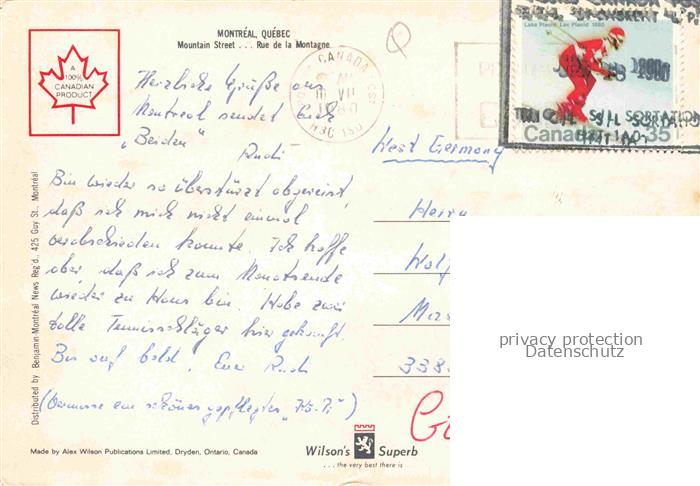 MONTRÉAL, QUÉBEC
Mountain Street . . . Rue de la Montagne
A
100%
CANADIAN
PRODUCT
CANADA
VII
1980
H3C 1S0
Lake Placid, Lac Placid 1980
Canada 35
Herzliche Grüße aus
Montreal sendet Euch
"Beiden"
Rudi
Bin wieder so überstürzt abgereist,
daß ich mich nicht einmal
verabschieden konnte. Ich hoffe
aber, daß ich zum Monatsende
wieder zu Haus bin. Habe zwei
tolle Tennisschläger hier gekauft.
Bis auf bald, Euer Rudi
(Vermisse ein schönes gepflegtes )
West Germany
Herrn
Wolf
338
privacy protection
Datenschutz
Distributed by Benjamin-Montréal News Reg'd., 425 Guy St., Montréal
Made by Alex Wilson Publications Limited, Dryden, Ontario, Canada
Wilson's Superb
. . . the very best there is